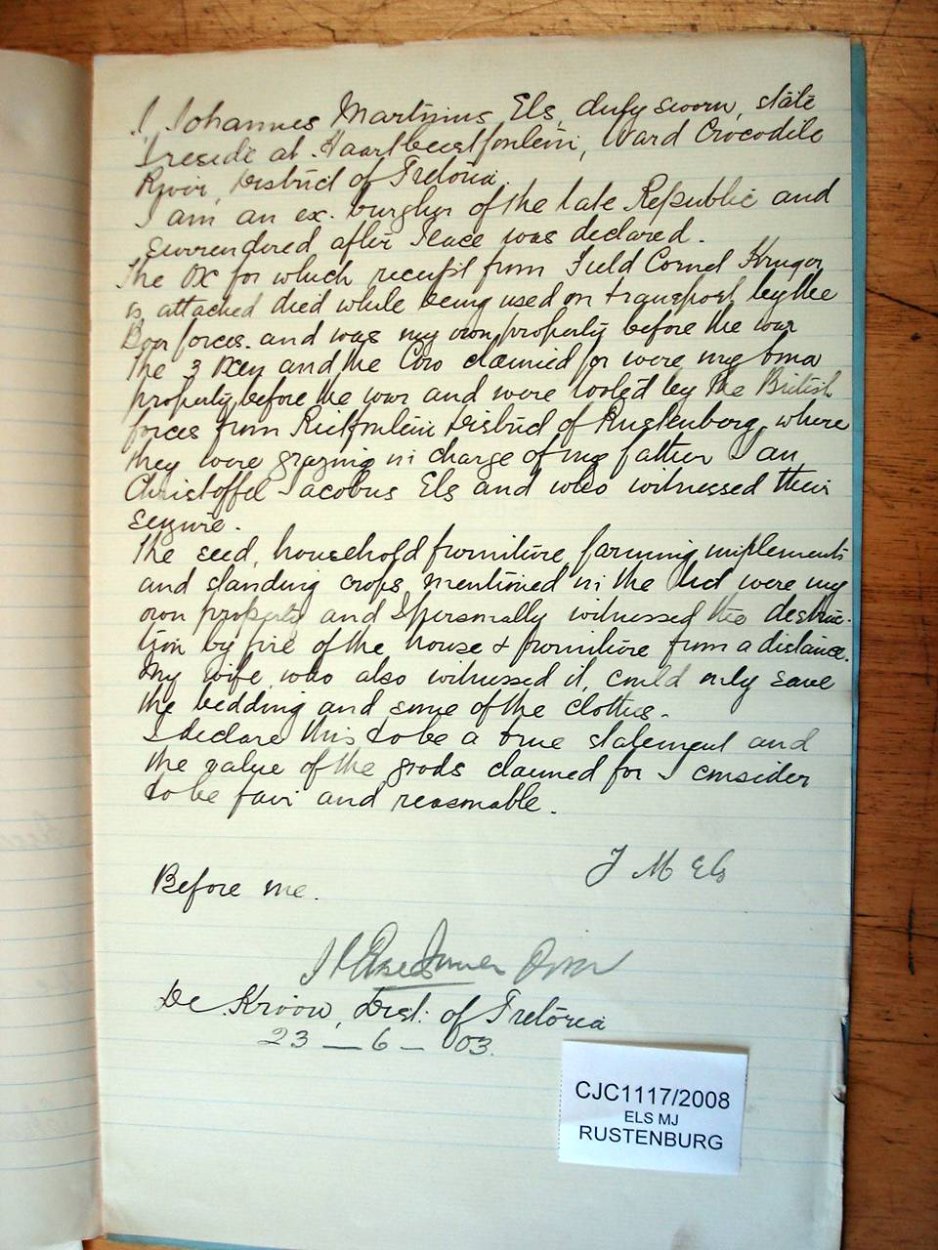 I Johannes Martinus Els, duly sworn, state
I reside at Haartbeestfontein, Ward Crocodile
River, District of Pretoria.
I am an ex. burgher of the late Republic and
surrendered after Peace was declared.
The Ox for which receipt from Field Cornet Kruger
is attached died while being used on transport by the
Boer forces. and was my own property before the war
The 3 Oxen and the Cow claimed for were my bona
property before the war and were looted by the British
forces from Rietfontein District of Rustenburg, where
they were grazing in charge of my father Jan
Christoffel Jacobus Els and who witnessed their
seizure.
The seed, household furniture, farming implements
and standing crops mentioned in the list were my
own property and I personally witnessed the destruc-
tion by fire of the house & furniture from a distance.
My wife, who also witnessed it, could only save
the bedding and some of the clothes.
I declare this to be a true statement and
the value of the goods claimed for I consider
to be fair and reasonable.
J M Els
Before me.
De Kroon, Dist. of Pretoria
23 — 6 — 03.
CJC1117/2008
ELS MJ
RUSTENBURG